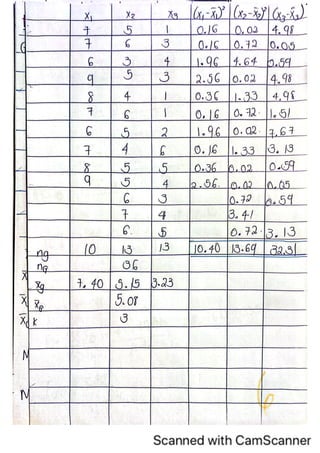 X₁ X₂ X₃ (X₁-X̄₁)² (X₂-X̄₂)² (X₃-X̄₃)²
7 5 1 0.16 0.02 4.98
7 6 3 0.16 0.72 0.05
6 3 4 1.96 4.64 0.59
9 5 3 2.56 0.02 4.98
8 4 1 0.36 1.33 4.98
7 6 1 0.16 0.72 1.51
6 5 2 1.96 0.02 7.67
7 4 6 0.16 1.33 3.13
8 5 5 0.36 0.02 0.59
9 5 4 2.56 0.02 0.05
6 3 0.72 0.59
7 4 3.41
6 5 0.72 3.13
ng 10 13 13 10.40 13.69 32.31
36
7.40 5.15 3.23
5.08
k 3
N
N
Scanned with CamScanner